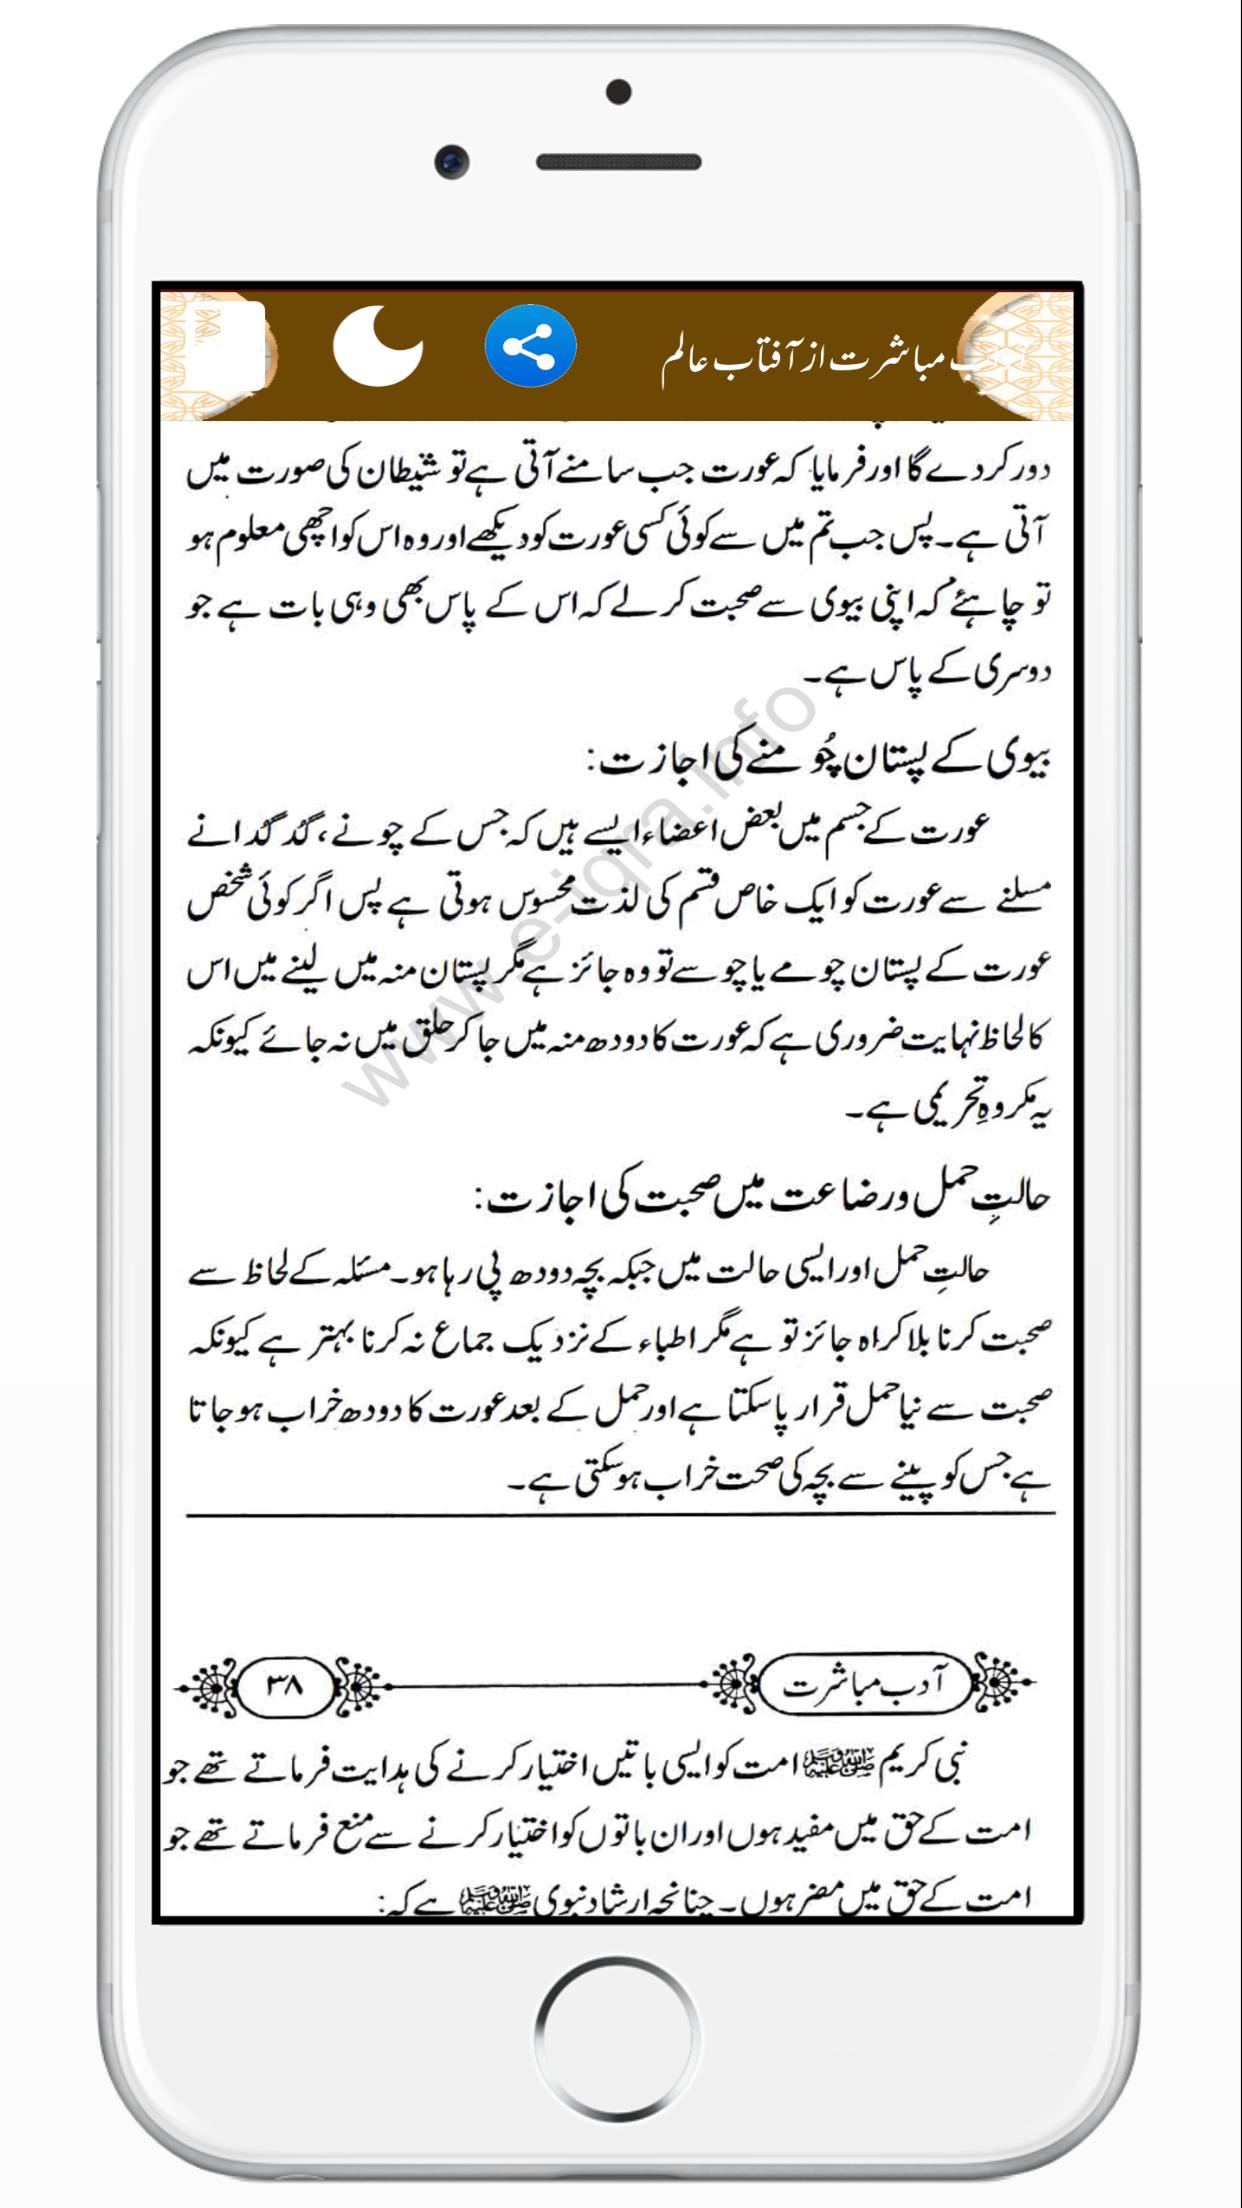 مباشرت از آفتاب عالم
دور کر دے گا اور فرمایا کہ عورت جب سامنے آتی ہے تو شیطان کی صورت میں
آتی ہے۔ پس جب تم میں سے کوئی کسی عورت کو دیکھے اور وہ اس کو اچھی معلوم ہو
تو چاہئے کہ اپنی بیوی سے صحبت کر لے کہ اس کے پاس بھی وہی بات ہے جو
دوسری کے پاس ہے۔
بیوی کے پستان چُومنے کی اجازت:
عورت کے جسم میں بعض اعضاء ایسے ہیں کہ جس کے چونے، گدگدانے
مسلنے سے عورت کو ایک خاص قسم کی لذت محسوس ہوتی ہے پس اگر کوئی شخص
عورت کے پستان چومے یا چوسے تو وہ جائز ہے مگر پستان منہ میں لینے میں اس
کا لحاظ نہایت ضروری ہے کہ عورت کا دودھ منہ میں جا کر حلق میں نہ جائے کیونکہ
یہ مکروہِ تحریمی ہے۔
حالتِ حمل و رضاعت میں صحبت کی اجازت:
حالتِ حمل اور ایسی حالت میں جبکہ بچہ دودھ پی رہا ہو۔ مسئلہ کے لحاظ سے
صحبت کرنا بلا کراہ جائز تو ہے مگر اطباء کے نزدیک جماع نہ کرنا بہتر ہے کیونکہ
صحبت سے نیا حمل قرار پا سکتا ہے اور حمل کے بعد عورت کا دودھ خراب ہو جاتا
ہے جس کو پینے سے بچہ کی صحت خراب ہو سکتی ہے۔
آدب مباشرت
۳۸
نبی کریم ﷺ امت کو ایسی باتیں اختیار کرنے کی ہدایت فرماتے تھے جو
امت کے حق میں مفید ہوں اور ان باتوں کو اختیار کرنے سے منع فرماتے تھے جو
امت کے حق میں مضر ہوں۔ چنانچہ ارشاد نبوی ﷺ ہے کہ:
www.e-iqra.info